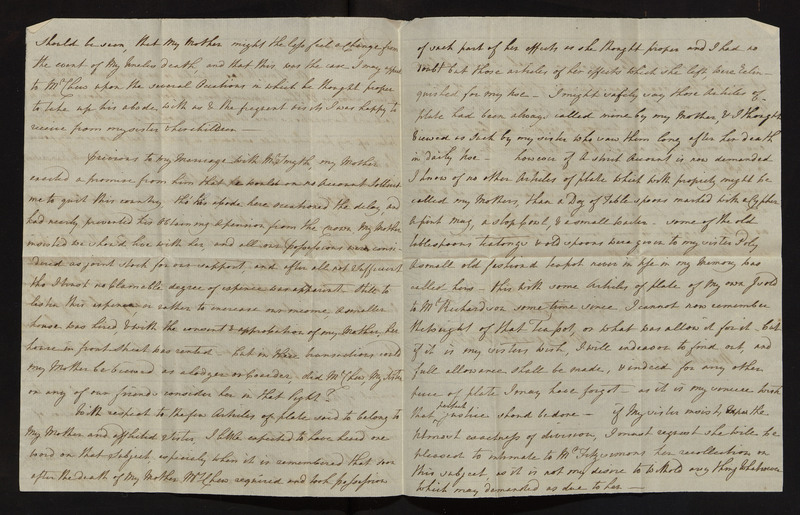 should be seen, that My Mother might the less feel a Change from
the event of My Uncles death, and that this was the case I may appeal
to Mr Chew upon the several occasions in which he thought proper
to take up his abode with us & the frequent visits I was happy to
receive from my sister & her children —
previous to my Marriage with Mr Smyth, my Mother
exacted a promise from him that he would on no Account sollicit
me to quit this country. tho' his abode here occasioned the delay, and
had nearly prevented his obtaining a pension from the Crown. My Mother
insisted we should live with her, and all our possessions were consi-
dered as joint stock for our support, and after all not sufficient
tho I trust no blameable degree of expence was apparent. Still to
lessen this expence or rather to increase our income, a smaller
house was hired & with the consent & approbation of my Mother, her
house in front Street was rented — but in these transactions could
my Mother be viewed as a lodger or boarder, did Mr Chew My Sister
or any of our friends consider her in that light?
With respect to the few Articles of plate said to belong to
My Mother and afflicted Sister, I little expected to have heard one
word on that subject especially when it is remembered that soon
after the death of My Mother Mrs Chew required and took possession
of such part of her effects as she thought proper and I had no
doubt but those articles of her effects which she left were relin-
quished for my use — I might safely say those Articles of
plate had been always called mine by my Mother, & I thought
viewed as such by my sister who saw them long after her death
in daily use — however if a strict Account is now demanded
I know of no other Articles of plate which with propriety might be
called my Mothers, than a Doz of Table spoons marked with a Cypher
a pint Mug, a slop bowl, & a small waiter. some of the old
tablespoons teatongs & old spoons were given to my sister Polly
a small old fashioned teapot never in use in my Memory was
called hers — this with some Articles of plate of My own I sold
to Mr Richardson some time since. I cannot now remember
the weight of that teapot, or what was allow'd for it. but
if it is my sisters wish, I will endeavor to find out, and
full allowance shall be made, & indeed for any other
piece of plate I may have forgot — as it is my sincere wish
that perfect justice should be done — if My sister insists upon the
utmost exactness of division, I must request she will be
pleased to intimate to Mr Fitzsimons her recollection on
this subject as it is not my desire to withold any thing whatever
which may demanded as due to her —